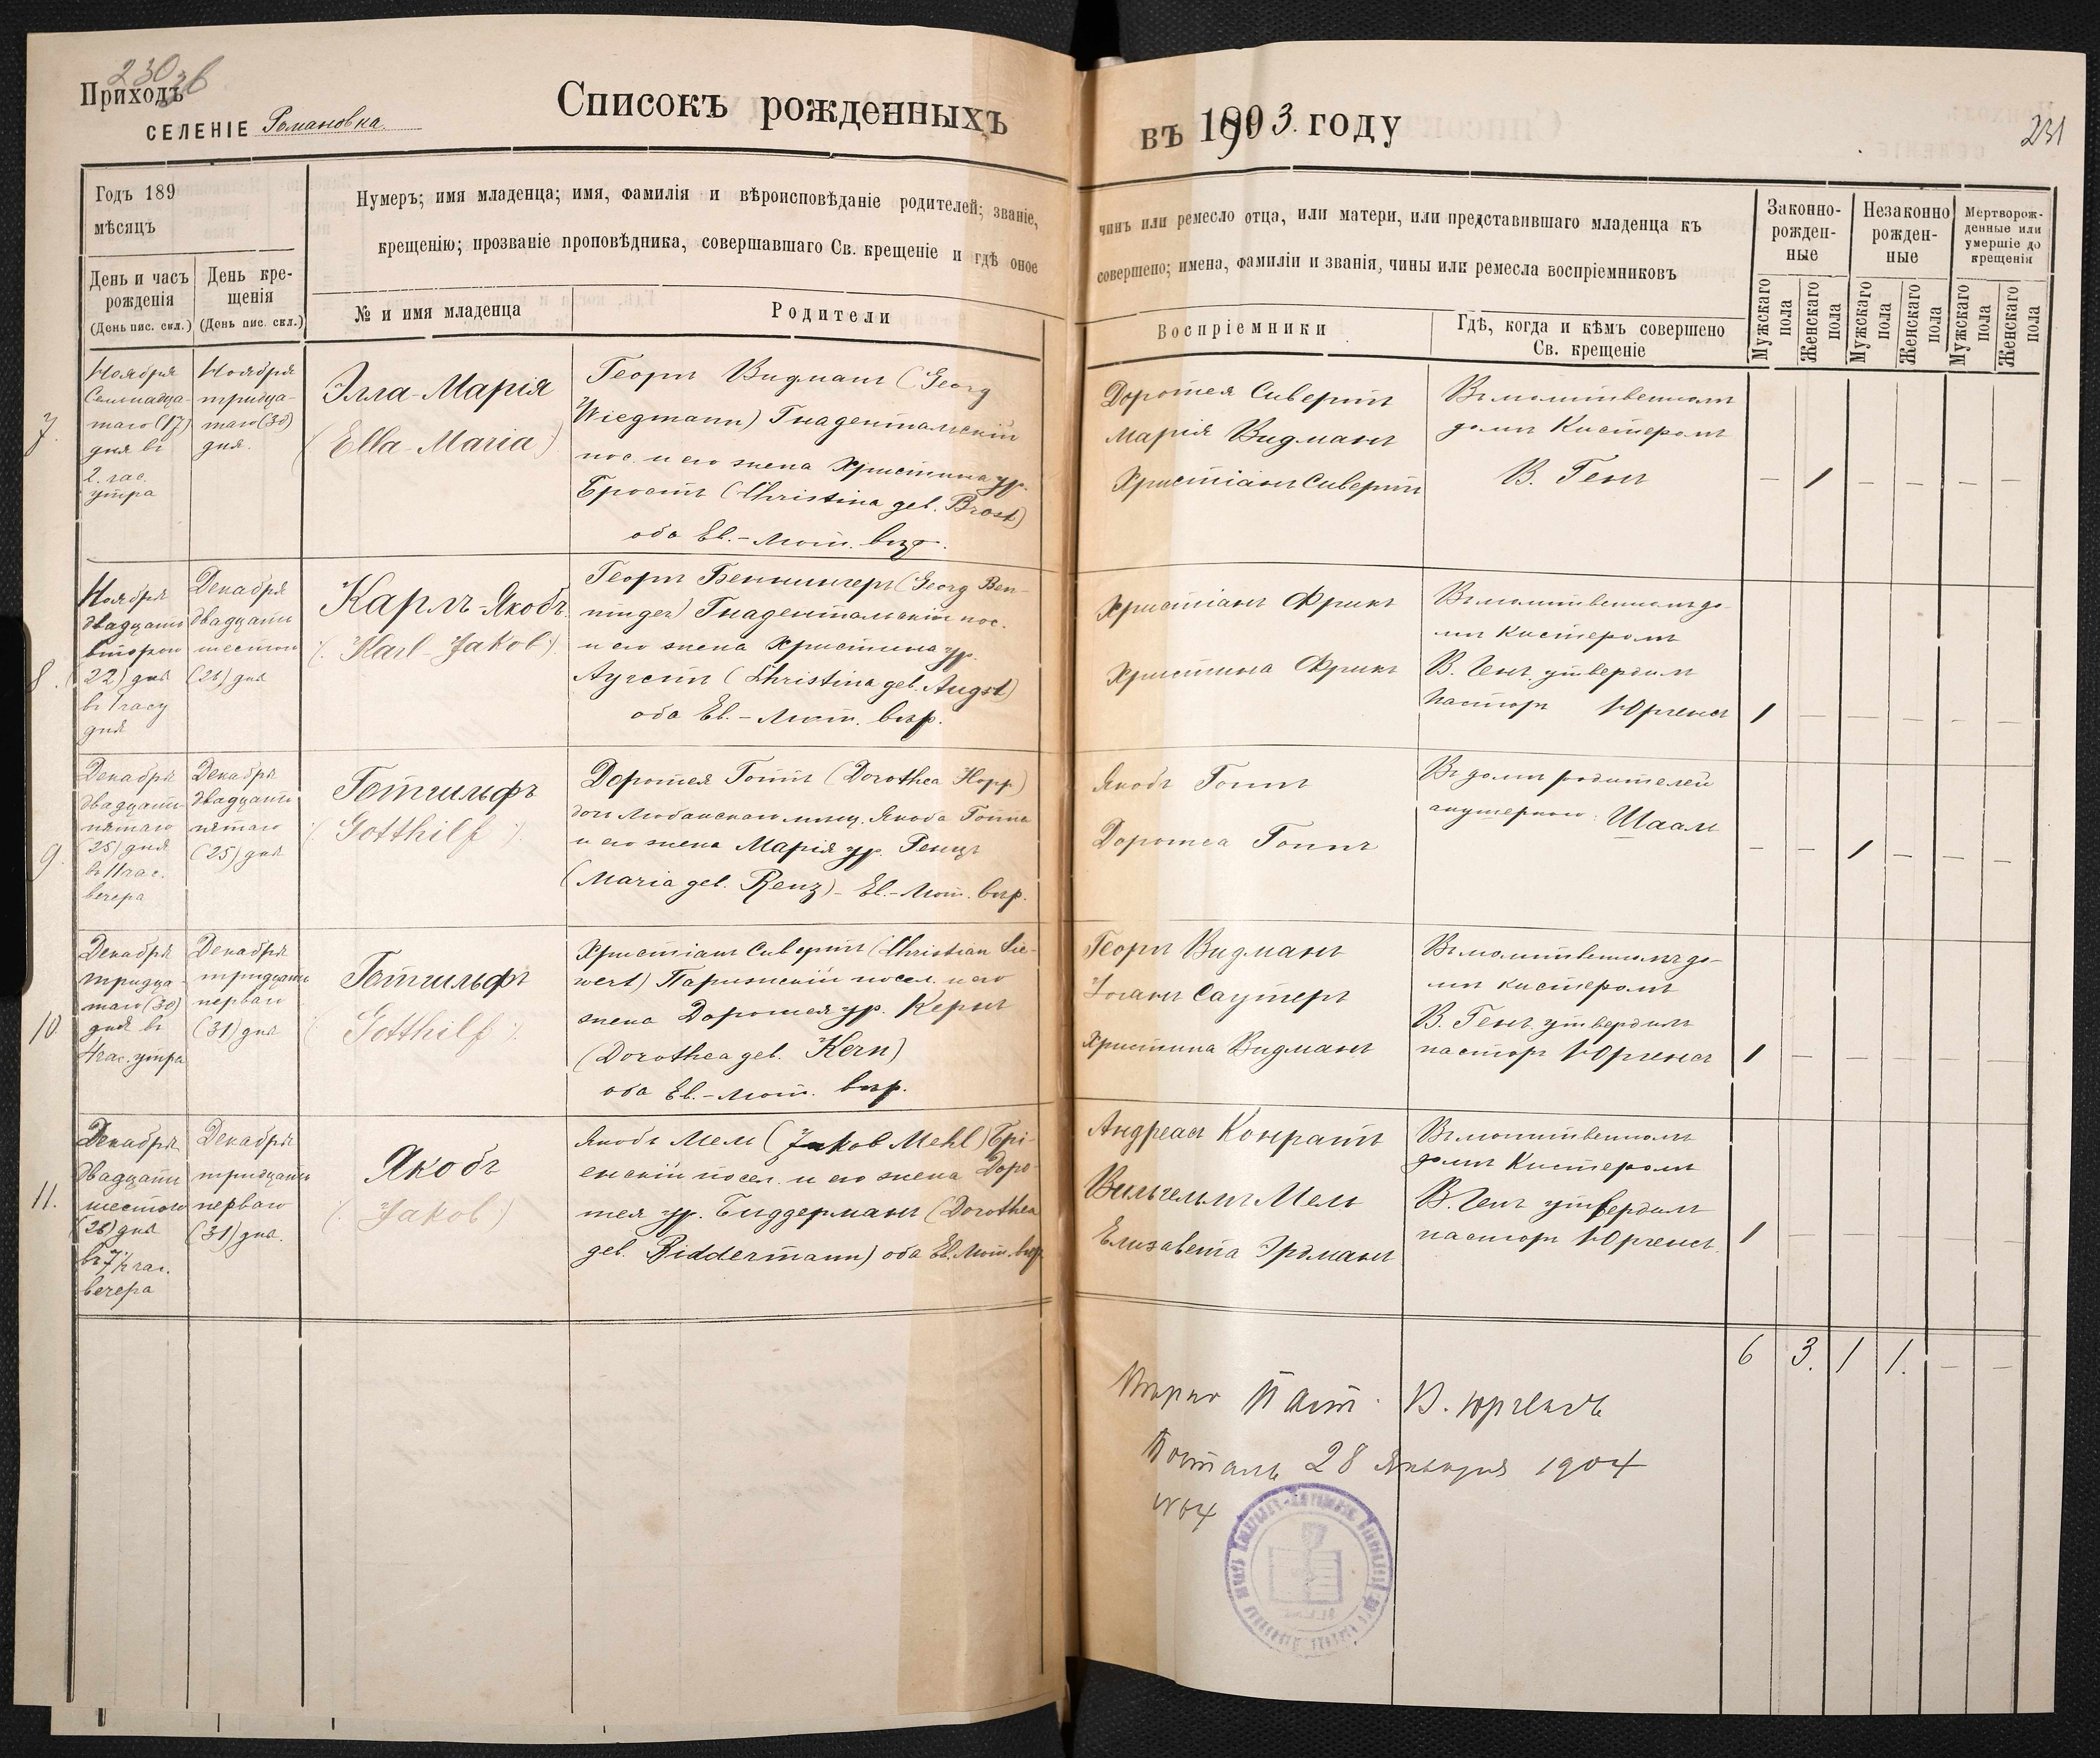 230
Приходъ
СЕЛЕНІЕ Романовка.
Списокъ рожденныхъ
въ 1903. году
231
Годъ 189
мѣсяцъ
День и часъ
рожденія
(День пис. скл.)
День кре-
щенія
(День пис. скл.)
Нумеръ; имя младенца; имя, фамилія и вѣроисповѣданіе родителей; званіе,
крещенію; прозваніе проповѣдника, совершавшаго Св. крещеніе и гдѣ оное
№ и имя младенца
Родители
чинъ или ремесло отца, или матери, или представившаго младенца къ
совершено; имена, фамиліи и званія, чины или ремесла воспріемниковъ
Воспріемники
Гдѣ, когда и кѣмъ совершено
Св. крещеніе
Законно-
рожден-
ные
Незаконно
рожден-
ные
Мертворож-
денные или
умершіе до
крещенія
Мужскаго
пола
Женскаго
пола
Мужскаго
пола
Женскаго
пола
Мужскаго
пола
Женскаго
пола
7.
Ноября
Семнадца-
таго (17)
дня въ
2. час.
утра
Ноября
тридца-
таго (30)
дня.
Элла-Марія
(Ella Maria)
Георгъ Видманъ (Georg
Wiegmann) Гнадентальскій
пос. и его жена Христина ур.
Бростъ (Christina geb. Brost)
оба Ев.-Лют. вѣр.
Доротея Сивертъ
Марія Видманъ
Христіанъ Сивертъ
Въ молитвенномъ
домѣ Кистеромъ
В. Генъ
— 1 — — — —
8.
Ноября
двадцать
второго
(22) дня
въ 1 часу
дня
Декабря
двадцать
шестого
(26) дня
Карлъ-Якобъ
(Karl-Jakob)
Георгъ Беннингеръ (Georg Ben-
ninger) Гнадентальскій пос.
и его жена Христина ур.
Аугстъ (Christina geb. Augst)
оба Ев.-Лют. вѣр.
Христіанъ Фрикъ
Христина Фрикъ
Въ молитвенномъ до-
мѣ Кистеромъ
В. Генъ. утвердилъ
Пасторъ Юргенсъ
1 — — — — —
9.
Декабря
двадцать
пятаго
(25) дня
въ 11 час.
вечера
Декабря
двадцать
пятаго
(25) дня
Готгильфъ
(Gotthilf)
Доротея Гоппъ (Dorothea Hopp)
доч. мѣщ. Якоба Гоппъ
и его жена Марія ур. Ренцъ
(Maria geb. Renz) - Ев.-Лют. вѣр.
Якобъ Гоппъ
Доротеа Гоппъ
Въ домѣ родителей
акушеркою Шааль
— — 1 — — —
10
Декабря
тридца-
таго (30)
дня въ
4 час. утра
Декабря
тридцать
перваго
(31) дня
Готгильфъ
(Gotthilf)
Христіанъ Сивертъ (Christian Sie-
wert) Парижскій посел. и его
жена Доротея ур. Кернъ
(Dorothea geb. Kern)
оба Ев.-Лют. вѣр.
Георгъ Видманъ
Іоганъ Саутеръ
Христина Видманъ
Въ молитвенномъ до-
мѣ кистеромъ
В. Генъ. утвердилъ
пасторъ Юргенсъ
1 — — — — —
11.
Декабря
двадцать
шестого
(26) дня
въ 7½ час.
вечера
Декабря
тридцать
перваго
(31) дня.
Якобъ
(Jakob)
Якобъ Мель (Jakob Mehl) Брі-
енскій посел. и его жена Доро-
тея ур. Биддерманъ (Dorothea
geb. Biddermann) оба Ев. Лют. вѣр.
Андреасъ Конратъ
Вильгельмъ Мель
Елизавета Эрдманъ
Въ молитвенномъ
домѣ Кистеромъ
В. Генъ утвердилъ
пасторъ Юргенсъ.
1 — — — — —
6 3. 1 1. — —
Вѣрно Паст. В. Юргенсъ
Посталь 28 Января 1904
№ 64